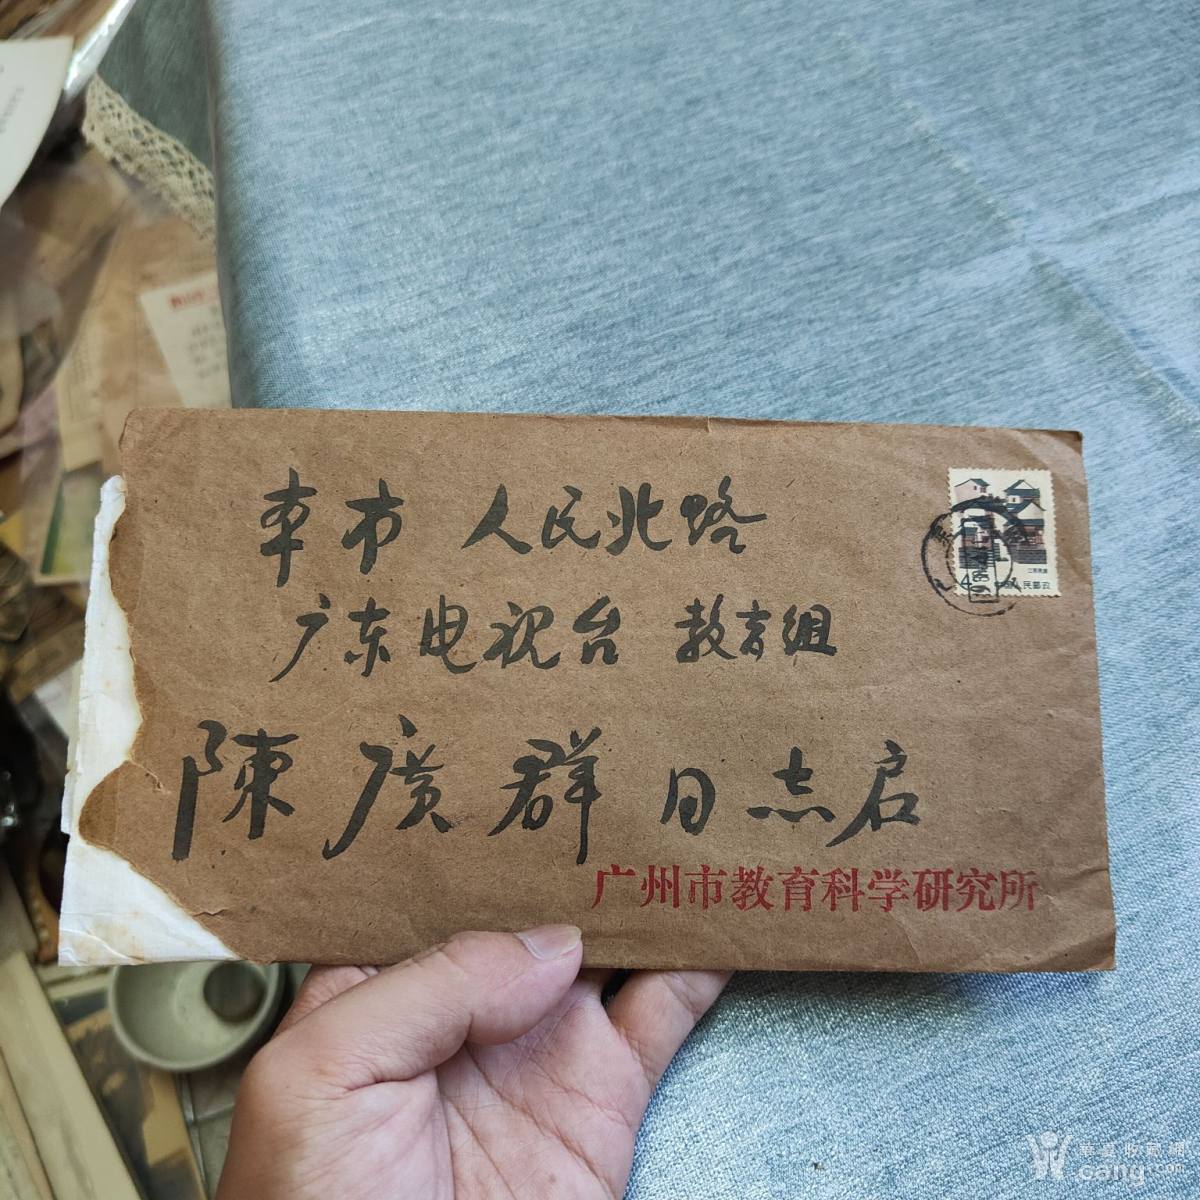 本市 人民北路
广东电视台 教育组
陳廣群同志启
广州市教育科学研究所
华夏收藏网
cang.com